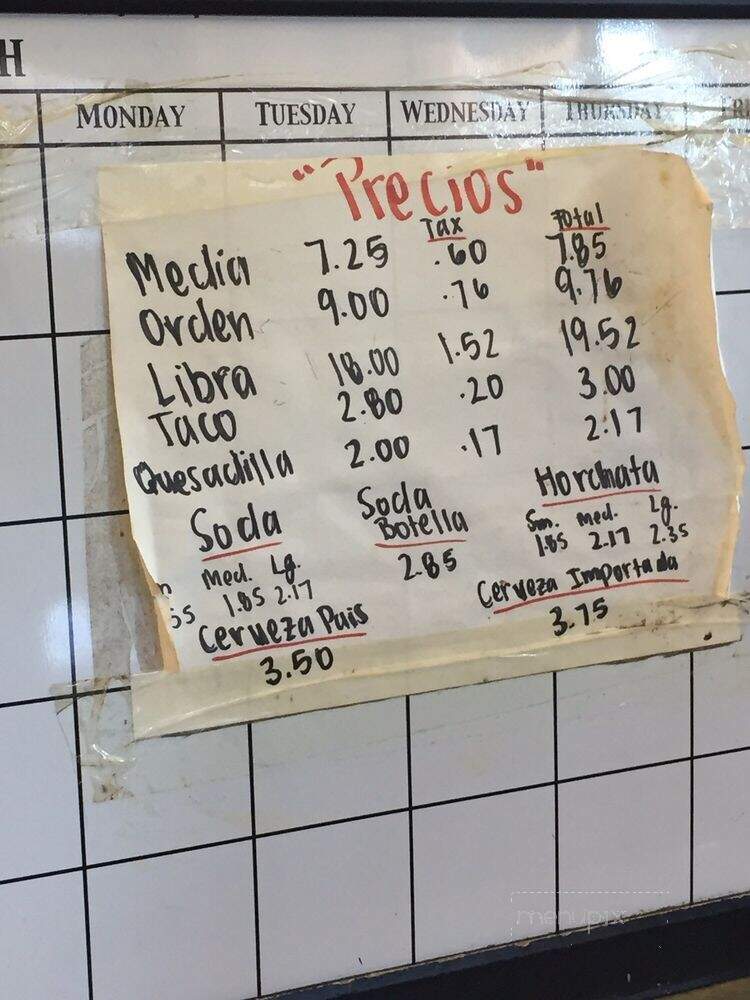 H
MONDAY TUESDAY WEDNESDAY THURSDAY FRI
"Precios"
Tax Total
Media 7.25 .60 7.85
Orden 9.00 .76 9.76
Libra 18.00 1.52 19.52
Taco 2.80 .20 3.00
Quesadilla 2.00 .17 2.17
Soda Soda Botella Horchata
Med. Lg. 2.85 Sm. med. Lg.
55 1.85 2.17 1.85 2.17 2.35
Cerveza Pais Cerveza Importada
3.50 3.75
menupix